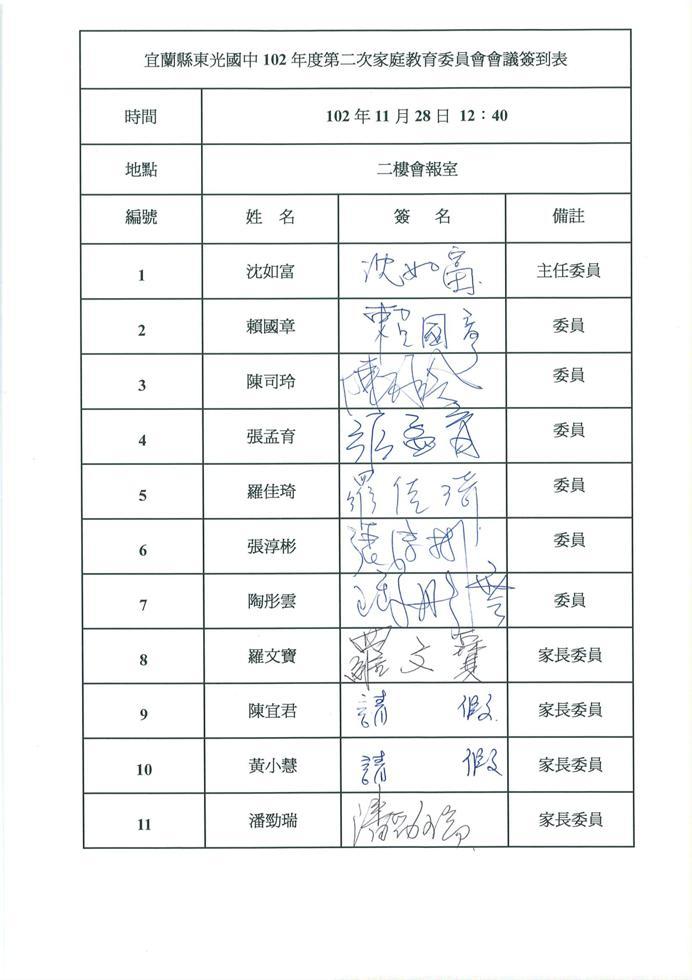 宜蘭縣東光國中 102 年度第二次家庭教育委員會會議簽到表
時間 102 年 11 月 28 日 12：40
地點 二樓會報室
編號 姓 名 簽 名 備註
1 沈如富 沈如富 主任委員
2 賴國章 賴國章 委員
3 陳司玲 陳司玲 委員
4 張孟育 張孟育 委員
5 羅佳琦 羅佳琦 委員
6 張淳彬 張淳彬 委員
7 陶彤雲 陶彤雲 委員
8 羅文寶 羅文寶 家長委員
9 陳宜君 請 假 家長委員
10 黃小慧 請 假 家長委員
11 潘勁瑞 潘勁瑞 家長委員